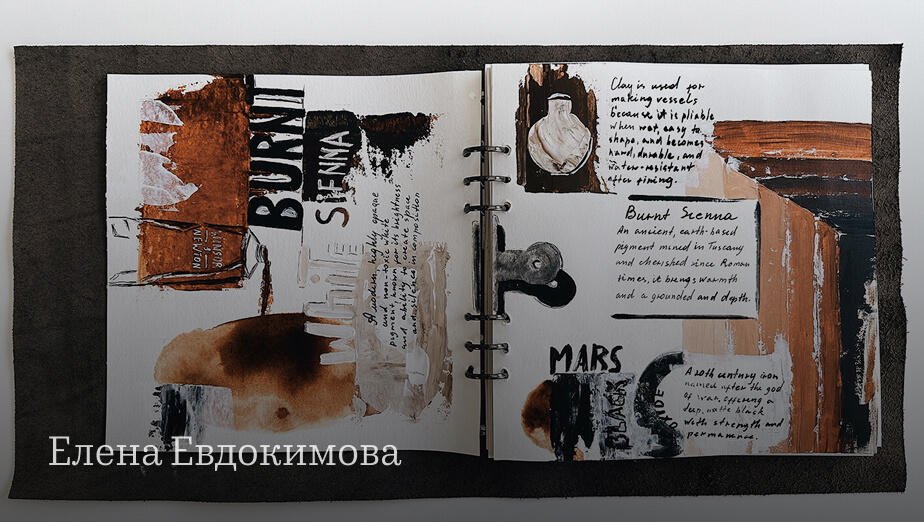 BURNT
SIENNA
WINSOR
NEWTON
WHITE
A modern, highly opaque
and non-toxic white
pigment, known for its brightness
and ability to create space
and silence in composition
Clay is used for
making vessels
because it is pliable
when wet, easy to
shape, and becomes
hard, durable, and
water-resistant
after firing.
Burnt Sienna
An ancient, earth-based
pigment mined in Tuscany
and cherished since Roman
times, it brings warmth
and a grounded and depth.
MARS
BLACK
A 20th century iron
named after the god
of war, offering a
deep, matte black
with strength and
permanence.
Елена Евдокимова